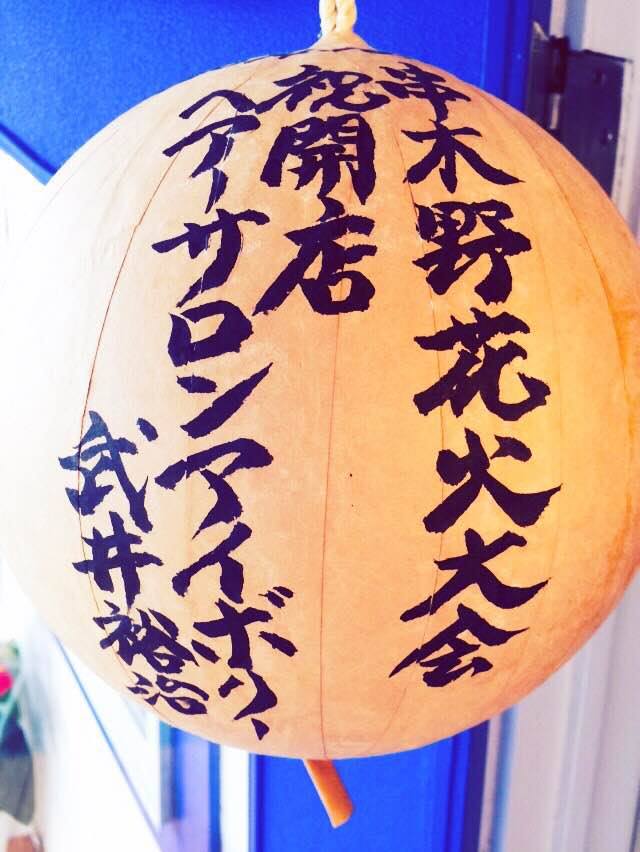 串木野花火大会
祝開店
ヘアーサロンアイボリー
武井裕治